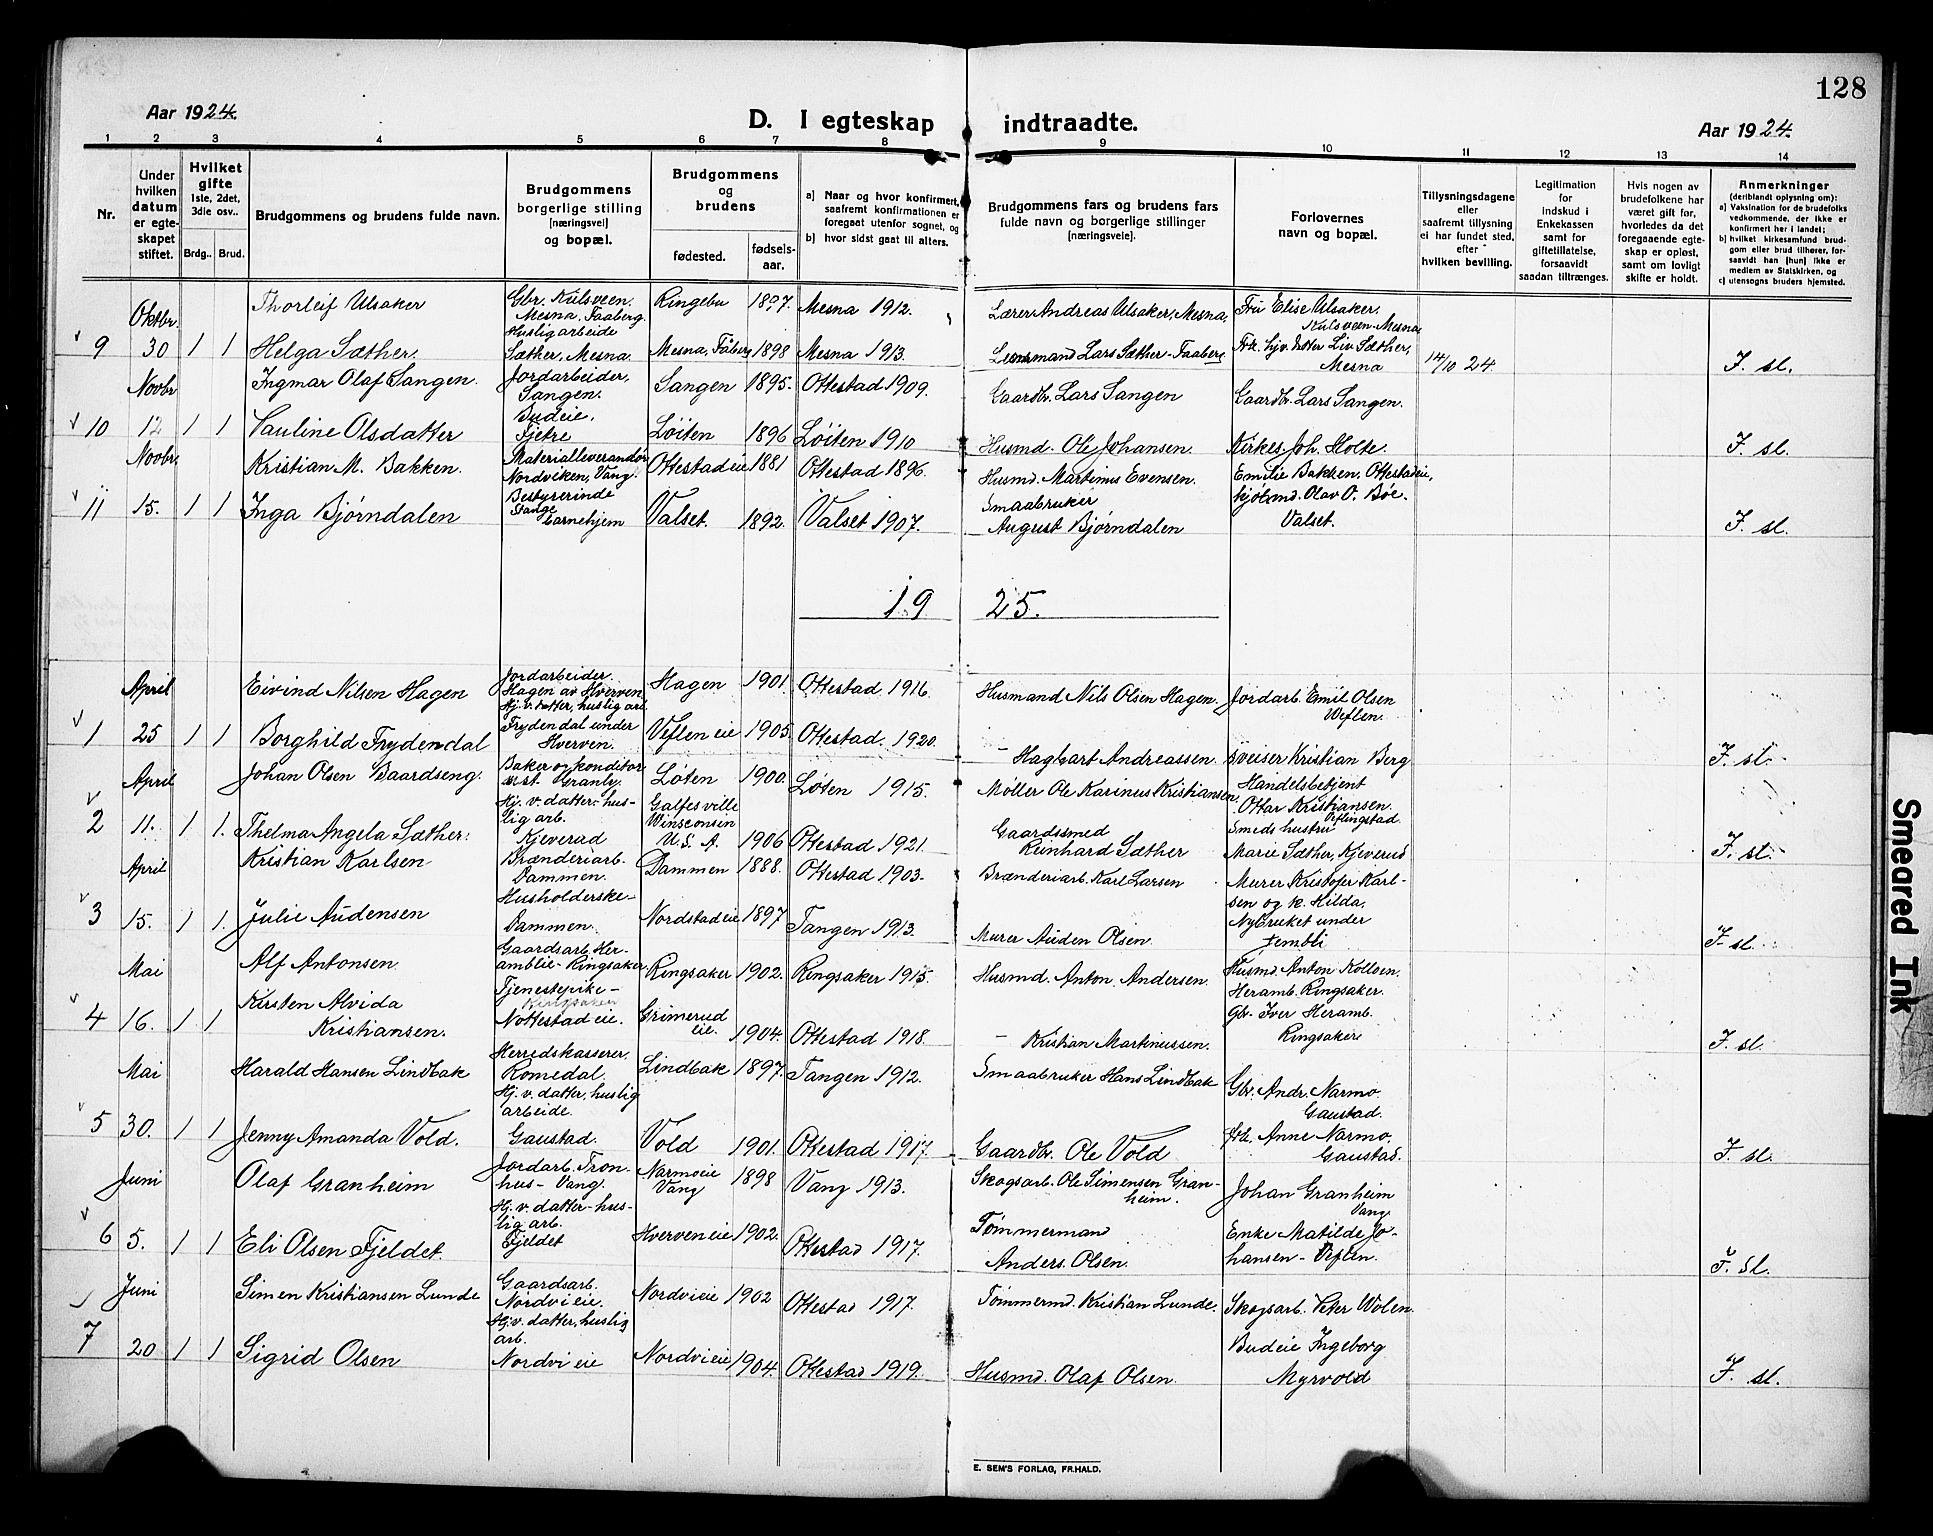 128
Aar 1924.
D. I egteskap indtraadte.
Aar 1924.
1 2 3 4 5 6 7 8 9 10 11 12 13 14
Nr.
Under hvilken datum er egteskapet stiftet.
Hvilket gifte
1ste, 2det, 3die osv..
Brdg.. Brud.
Brudgommens og brudens fulde navn.
Brudgommens borgerlige stilling (næringsvei) og bopæl.
Brudgommens og brudens
fødested.
fødsels-aar.
a) Naar og hvor konfirmert, saafremt konfirmationen er foregaat utenfor sognet, og
b) hvor sidst gaat til alters.
Brudgommens fars og brudens fars fulde navn og borgerlige stillinger (næringsveie).
Forlovernes navn og bopæl.
Tillysningsdagene eller saafremt tillysning ei har fundet sted, efter hvilken bevilling.
Legitimation for indskud i Enkekassen samt for giftetillatelse, forsaavidt saadan tiltrænges.
Hvis nogen av brudefolkene har været gift før, hvorledes da det foregaaende egteskap er opløst, samt om lovligt skifte er holdt.
Anmerkninger
(deriblandt oplysning om):
a) Vaksination for de brudefolks vedkommende, der ikke er konfirmert her i landet;
b) hvilket kirkesamfund brudgom eller brud tilhører, forsaavidt han [hun] ikke er medlem av Statskirken, og
c) utensogns bruders hjemsted.
Oktbr. Thorleif Ulsaker Gbr. Kulsveen, Mesna, Faaberg. Ringebu 1897. Mesna 1912. Lærer Andreas Ulsaker, Mesna, Fru Elise Ulsaker, Kulsveen-Mesna,
9 30 1 1 Helga Sæther. Husligarbeide Sæther, Mesna. Mesna, Fåberg 1898 Mesna 1913. Lensmand Lars Sæther-Faaberg Frk. hjv. datter Liv Sæther, Mesna 14/10 24. F. sl.
Novbr Ingmar Olaf Sangen. Jordarbeider, Sangen. Sangen 1895. Ottestad 1909. Gaardbr. Lars Sangen Gaardbr. Lars Sangen.
10 12 1 1 Pauline Olsdatter Budeie, Fjetre Løiten 1896 Løiten 1910 Husmd. Ole Johansen. Kirkes. Joh. Holte. F. sl.
Novbr. Kristian M. Bakken. Materialleverandør Nordviken, Vang. Ottestadeie 1881 Ottestad 1896. Husmd. Martinus Evensen. Emilie Bakken, Ottestadeie,
11 15. 1 1 Inga Bjørndalen Bestyrerinde Stange barnehjem Valset. 1892. Valset 1907. Smaabruker August Bjørndalen Kjøbmd. Olav O. Bøe. Valset. F. sl.
19 25.
April Eivind Nilsen Hagen Jordarbeider. Hagen av Hverven Hagen 1901. Ottestad 1916. Husmand Nils Olsen Hagen. Jordarb. Emil Olsen Veflen.
1 25 1 1 Borghild Frydendal Hj. v. datter, huslig arb. Frydendal under Hverven. Veflen eie 1905. Ottestad. 1920. – Hagbart Andreassen. Sveiser Kristian Berg F. sl.
April Johan Olsen Baardseng. Baker og konditor Granly. Løten 1900. Løten 1915. Møller Ole Karinus Kristiansen. Handelsbetjent Ottar Kristiansen. Veflingstad.
2 11. 1 1. Thelma Angela Sæther. Hj. v. datter- huslig arb. Kjeverud Galfesville Winsconsin U.S.A. 1906 Ottestad 1921. Gaardssmed Reinhard Sæther Smeds hustru Marie Sæther, Kjeverud F. sl.
April Kristian Karlsen Brænderiarb. Dammen. Dammen 1888. Ottestad 1903. Brænderiarb. Karl Larsen Murer Kristofer Karlsen og k. Hilda,
3 15. 1 1. Julie Audensen Husholderske- Dammen. Nordstadeie 1897 Tangen 1913. Murer Auden Olsen. Nybruket under Jembli F. sl.
Mai Alf Antonsen. Gaardsarb. Heramblie-Ringsaker Ringsaker 1902. Ringsaker 1915. Husmd. Anton Andersen. Husmd. Anton Kolloen. Heramb. Ringsaker.
4 16. 1 1 Kirsten Alvida Kristiansen. Tjenestepike- Ringsaker Nottestad eie. Grimerud eie. 1904. Ottestad 1918. – Kristian Martinussen. Gbr. Iver Heramb. Ringsaker F. sl.
Mai Harald Hansen Lindbak Herredskasserer. Romedal. Lindbak 1897. Tangen 1912. Smaabruker Hans Lindbak Gbr. Andr. Narmo. Gaustad.
5 30. 1 1 Jenny Amanda Vold. Hj. v. datter, huslig arbeide. Gaustad. Vold 1901. Ottestad 1917. Gaardbr. Ole Vold Frk. Anne Narmo. Gaustad. F. sl.
Juni Olaf Granheim Jordarb. Tronhus- Vang. Narmoeie Vang 1898 Vang 1913. Skogsarb. Ole Simensen Granheim. Johan Granheim Vang
6 5. 1 1 Eli Olsen Fjeldet. Hj. v. datter- huslig arb. Fjeldet Hverven eie 1902. Ottestad 1917. Tømmermand Anders Olsen. Enke Matilde Johansen- Veflen. F. sl.
Juni Simen Kristiansen Lunde Gaardsarb. Nordvi eie. Nordvieie 1902 Ottestad 1917. Tømmermd. Kristian Lunde. Skogsarb. Peter Wolen.
7 20 1 1 Sigrid Olsen Hj. v. datter, huslig arb. Nordvi eie Nordvieie 1904. Ottestad 1919. Husmd. Olaf Olsen. Budeie Ingeborg Myrvold F. sl.
E. SEM'S FORLAG, FR.HALD.
Smeared Ink